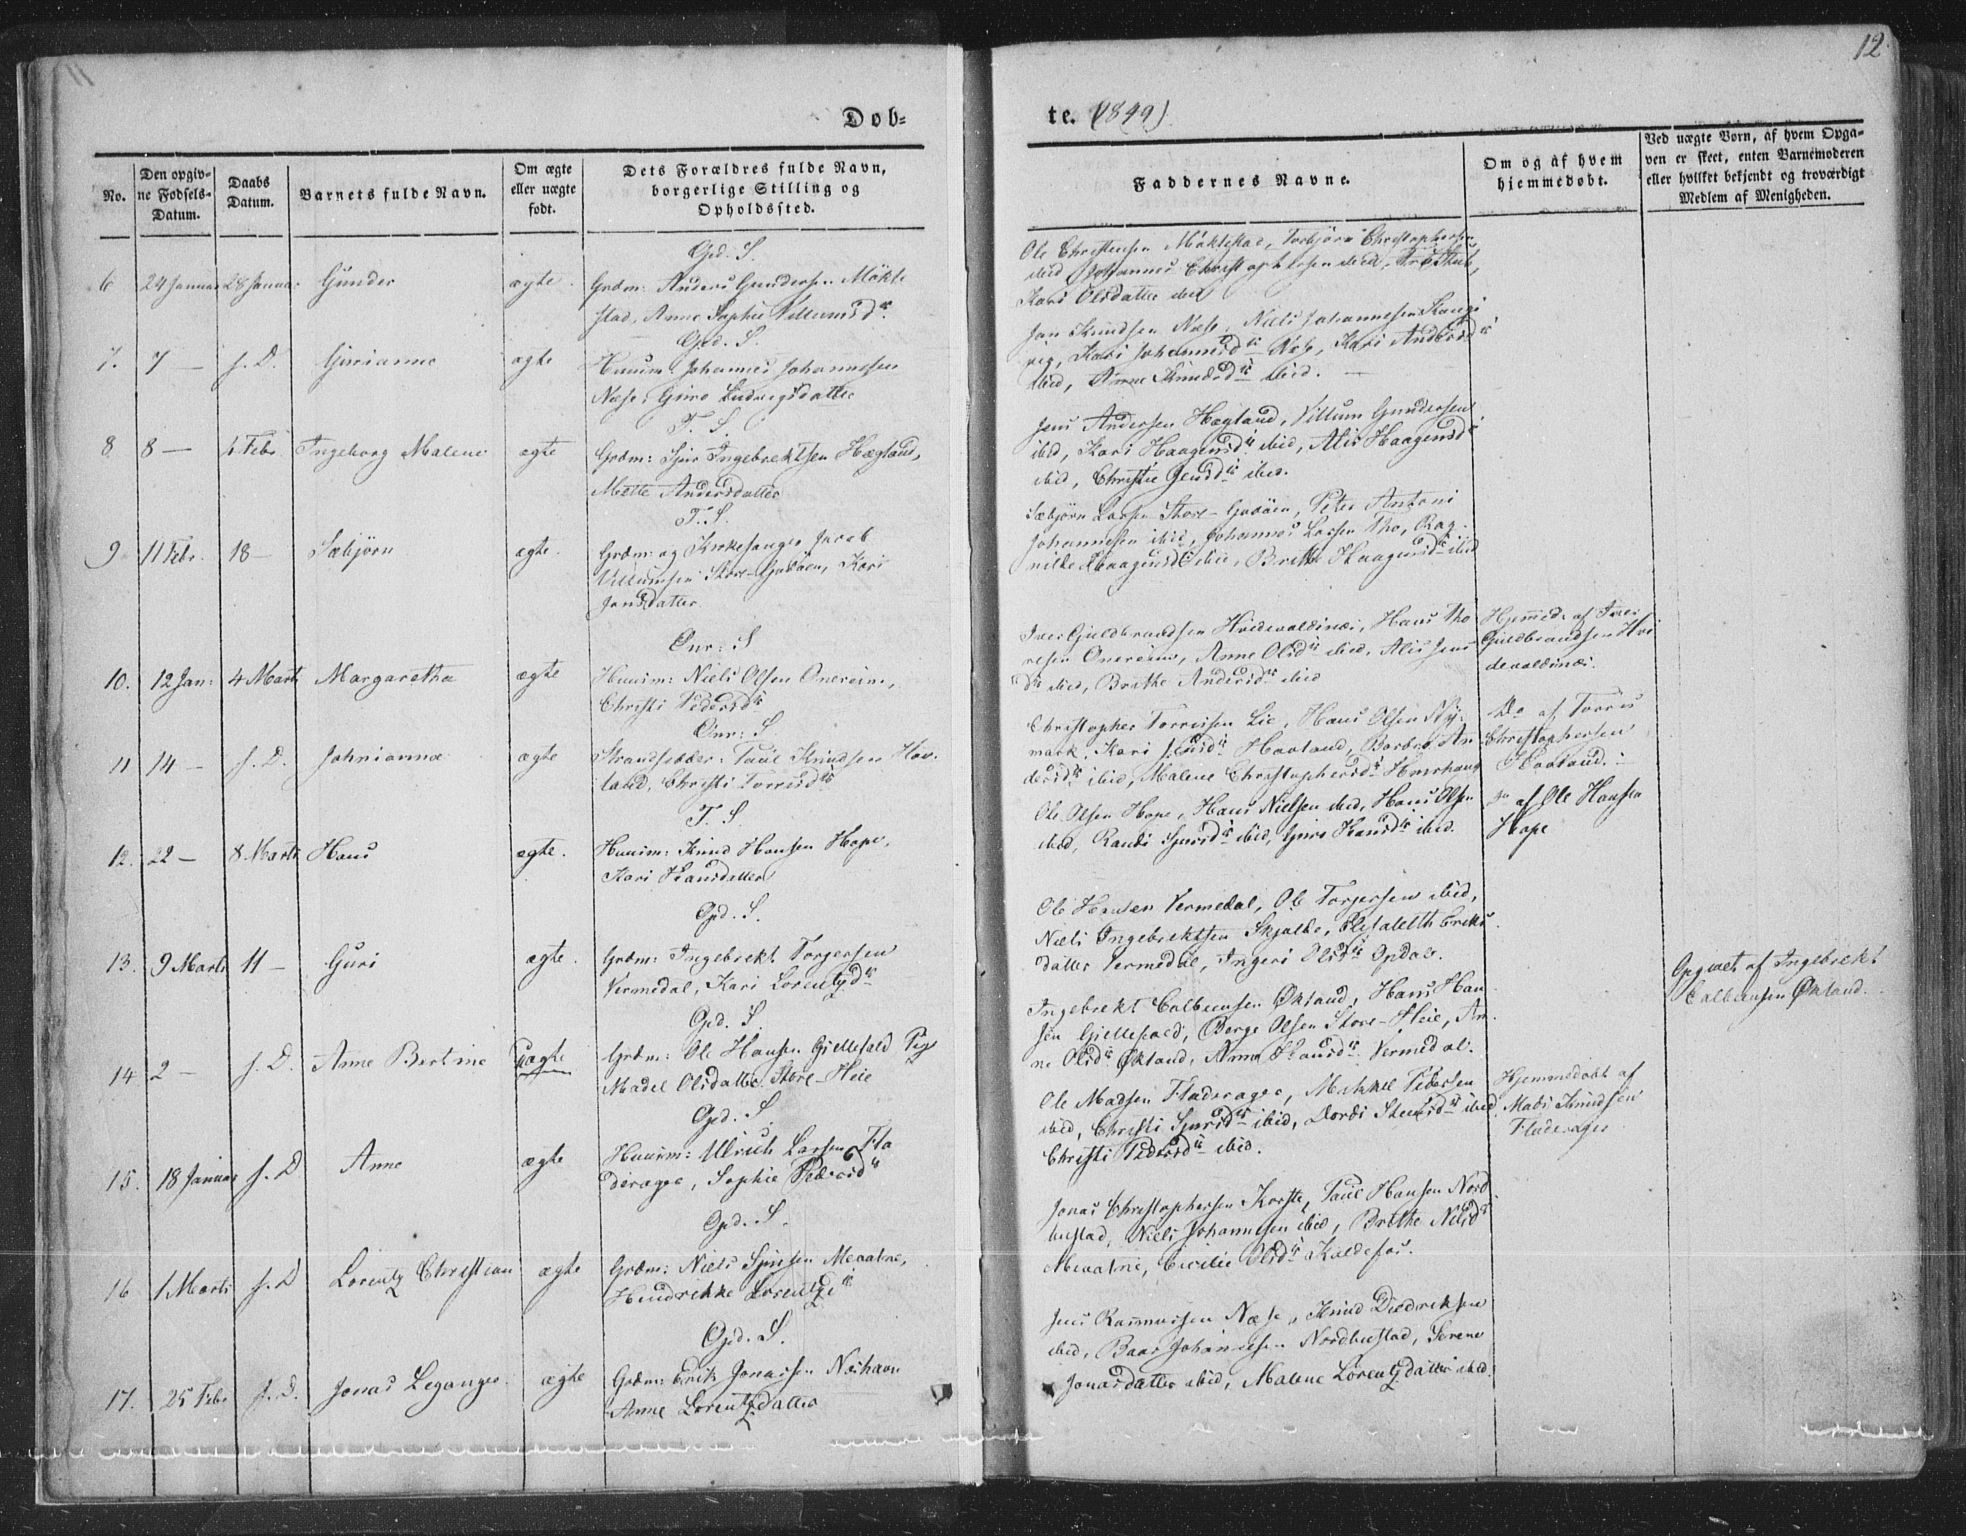 12
Døb=
te. (1849).
No.
Den opgiv-
ne Fødsels-
Datum.
Daabs
Datum.
Barnets fulde Navn.
Om ægte
eller uægte
født.
Dets Forældres fulde Navn,
borgerlige Stilling og
Opholdssted.
Faddernes Navne.
Om og af hvem
hjemmedøbt.
Ved uægte Børn, af hvem Opga-
ven er skeet, enten Barnemoderen
eller hvilket bekjendt og troværdigt
Medlem af Menigheden.
Opd. S.
6 24 Januar 28 Januar Gunder ægte. Grdm: Anders Gundersen Møkle
stad, Anne Sophie Villumsdr
Ole Christensen Møklestad, Torbjørn Christophersen
ibid, Johannes Christophersen ibid,
Kari Olsdatter ibid
Opd. S.
7. 7 — s. D. Gurianne ægte Huusm: Johannes Johannessen
Næse, Guro Ludvigsdatter
Jan Knudsen Næse, Niels Johannesen
Kari Johannesdr Næse, Kari Andersdr
ibid, Anne Knudsdr ibid. —
T. S.
8 8 — 4 Febr. Ingeborg Malene ægte Grdm: Sjur Ingebrektsen Hægland,
Mette Andersdatter
Jens Andersen Hægland, Villum Gundersen
ibid, Kari Haagensdr ibid, Alis Haagensdr
ibid, Christie Jensdr ibid.
T. S.
9 11 Febr. 18 — Sæbjørn ægte. Grdm: og Kirkesanger Jacob
Villumsen Store-Godøen, Kari
Jonsdatter
Sæbjørn Store-Godøen, Peter Antoni
Johannesen ibid, Johannes Larsen Thoe, Rag-
nilde Haagensdr ibid, Brithe Haagensdr ibid
Onr: S
10. 12 Jan: 4 Marts Margaretha ægte Huusm: Niels Olsen Onereim,
Christi Pedersdr
Iver Guldbrandsen Hvidevoldsnæs, Hans Tho
resen Onereim, Anne Olsdr ibid, Alis Jens
dr ibid, Brithe Andersdr ibid
Hjemmed: af Iver
Guldbrandsen Hvi
devoldsnæs.
Onr: S.
11 14 — s. D. Johnianna ægte Strandsidder: Paul Knudsen Hav-
land, Christi Torrisdr
Christopher Torrisen Lie, Hans Olsen Ny-
mark, Kari Haaland, Barbro An
dersdr ibid, Malene Christophersdr
Do af Torris
Christophersen
Haaland.
T. S
12. 22 — 8 Marts Hans ægte. Huusm: Knud Hansen Hope,
Kari Hansdatter
Ole Olsen Hope, Hans Nielsen ibid, Hans Olsen
ibid, Randi Sjursdr ibid, Guro Hansdr ibid.
Do af Ole Hansen
Hope
Opd. S.
13. 9 Marts 11 — Guri ægte. Grdm: Ingebrekt Torgersen
Vermedal, Kari Lorentzdr
Ole Hansen Vermedal, Ole Torgersen ibid,
Niels Ingebrektsen Skjelbr, Elisabeth Eriks
datter Vermedal, Ingeri Olsdr Opdal.
Opd. S.
14 2 — s. D. Anne Bertine Uægte Grdm: Ole Hansen Gjellefald Pige
Madel Olsdatter Store-Heie
Ingebrekt Colbensen Økland, Hans Han
sen Gjellefald, Børge Olsen Store-Heie, An-
ne Olsdr Økland, Anna Hansdr Vermedal.
Opgivet af Ingebrekt
Colbensen Økland.
Opd. S.
15. 18 Januar s. D Anne ægte Huusm: Ulrich Larsen Fla
derager, Sophie Pedersdr
Ole Madsen Fladerager, Mikkel Pedersen
ibid, Christi Sjursdr ibid, Dordi Steensdr ibid,
Christi Pedersdr ibid.
Hjemmedøbt af
Mads Knudsen
Fladerager
Opd. S.
16 1 Marts s. D Lorentz Christian ægte Grdm: Niels Sjursen Mevatne,
Hendrikke Lorentzdr
Jonas Christophersen Korste, Paul Hansen Nord
hustad, Niels Johannesen ibid, Brithe Nilsdr
Mevatne, Cicilie Olsdr Kaldefos.
Opd. S.
17. 25 Febr s. D. Jonas Leganger ægte Grdm: Erik Jonassen Næshavn
Anne Lorentzdatter
Jens Rasmussen Næse, Knud Diedriksen
ibid, Baar Johannesen Nordhustad, Serene
Jonasdatter ibid, Malene Lorentzdatter ibid.